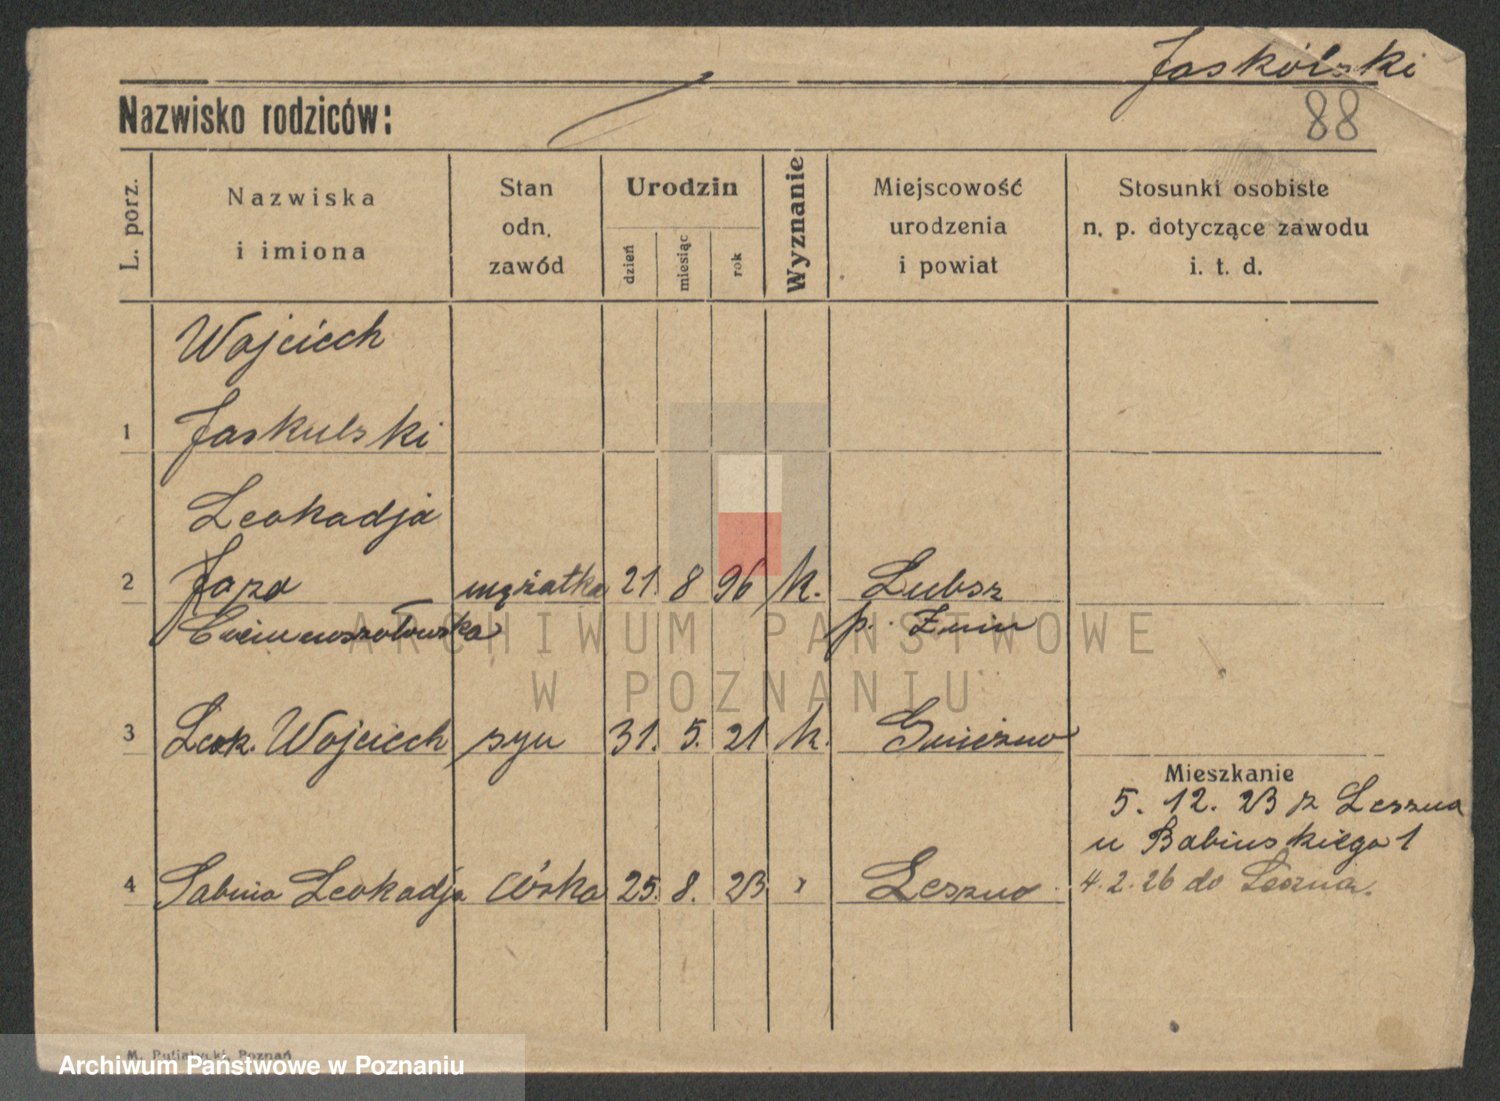 Jaskólski
Nazwisko rodziców:
88
L. porz.
Nazwiska
i imiona
Stan
odn.
zawód
Urodzin
dzień
miesiąc
rok
Wyznanie
Miejscowość
urodzenia
i powiat
Stosunki osobiste
n. p. dotyczące zawodu
i. t. d.
Wojciech
1 Jaskulski
Leokadja
2 mężatka 21. 8 96 k. Lubsz
p. Żnin
3 Leok. Wojciech syn 31. 5. 21 k. Gniezno
Mieszkanie
5. 12. 23 z Leszna
u Babinskiego 1
4 Sabina Leokadja córka 25. 8. 23 Leszno
4. 2. 26 do Leszna.
ARCHIWUM PAŃSTWOWE
W POZNANIU
Archiwum Państwowe w Poznaniu